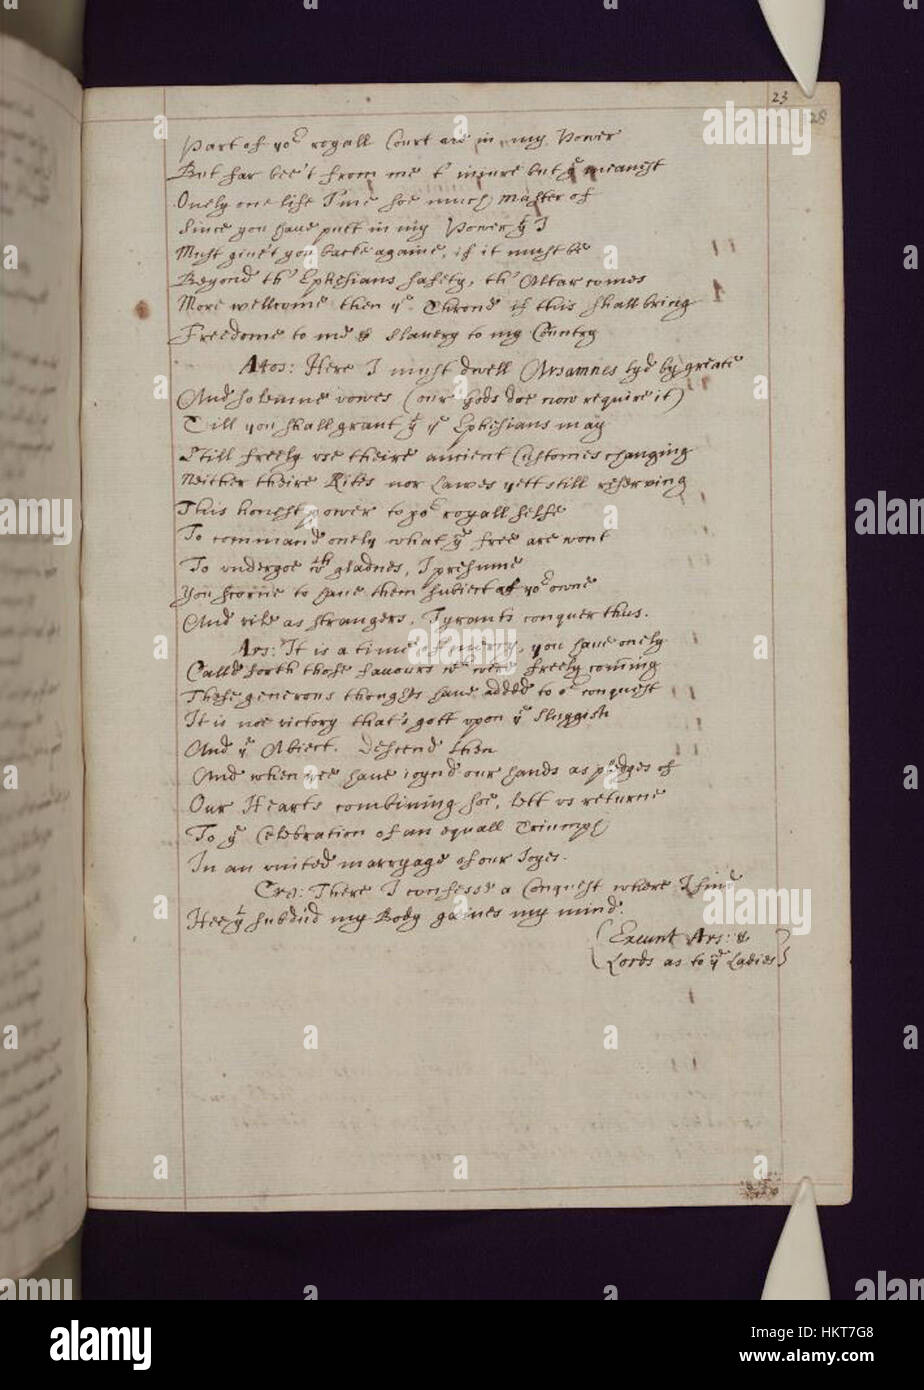 23
28
Part of yor royall Court are in my Power
But far bee't from me t' iniure but ye meanest
Onely one life I'me soe much master of
Since you have putt in my Power yt I
Must give't you backe againe, if it must be
Beyond th' Ephesians safety, th' Altar comes
More wellcome then ye Throne if this shall bring
Freedome to me & slavery to my Country
Atos: Here I must dwell Arsamnes tyd by greate
And solemne vowes (our Gods doe now require it)
Till you shall grant yt ye Ephesians may
Still freely use theire ancient Customes changing
Neither theire Rites nor Lawes yett still reserving
This honest power to yor royall selfe
To command onely what ye free are wont
To undergoe wth gladnes, I presume
You scorne to have them subiect at yor owne
And vile as strangers. Tyrants conquer thus.
Ars: It is a time of mercy, you have onely
Calld forth those favours wch were freely coming
These generous thoughts have added to or conquest
It is noe victory that's gott upon ye sluggish
And ye Abiect. Descend then
And when wee have ioynd our hands as pledges of
Our Hearts combining soe, lett us returne
To ye Celebration of an equall Triumph
In an united marryage of our Ioyes.
Cra: There I confesse a Conquest where I find
Hee yt subdu'd my Body gaines my mind.
(Exeunt Ars: &
Lords as to ye Ladies)
alamy
Image ID: HKT7G8
www.alamy.com